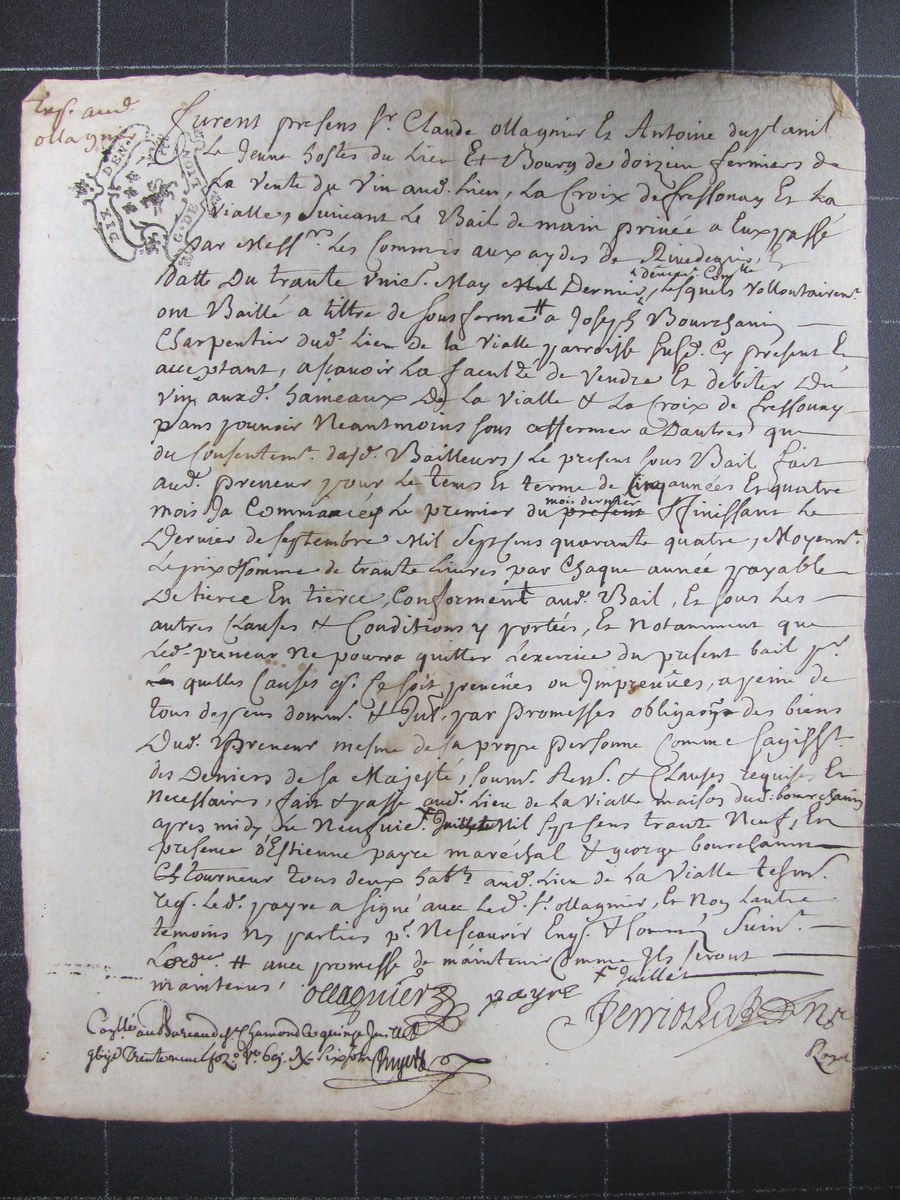 Exp. aud.
ollagnier
DIX DEN.
G. DE LION
Furent presens Sr. Claude ollagnier Et Antoine duplanil
Le Jeune hostes du Lieu Et Bourg de doizieu fermiers de
La vente du vin aud. Lieu, La Croix de fressonay Et La
Vialle, Suivant Le Bail de main privée a Eux passé
par Messrs. Les Commis aux aydes de Rivedegier, En
datte du trante unie. May Dernier, desquels vollontairemt.
ont Baillé a tiltre de sousferme # a Joseph Bourchanin
Charpentier dud. Lieu de la Vialle parroisse susd. Cy present Et
acceptant, ascavoir La faculté de vendre Et debiter Du
vin auxd. hameaux De La Vialle & La Croix de fressonay
sans pouvoir Neantmoins sous affermer a Dautres que
du Consentemt. desd. Bailleurs, Le present sous Bail fait
aud. preneur pour Le tems Et terme de Cinq années Et quatre
mois Ja Commancés Le premier du mois dernier & finissant Le
Dernier de septembre Mil Sept cens quarante quatre, Moyennt.
Le prix & somme de trante Livres par Chaque année payable
De tierce En tierce, Conformement aud. Bail, Et sous Les
autres Clauses & Conditions y portées, Et Notamment que
Led. preneur Ne pourra quitter Lexercice du present bail pr.
quelles Causes q. Ce soit preveües ou Impreveües, a peine de
tous despens domm. & Int. par promesses obligaon. des biens
Dud. Preneur mesme de sa propre personne Comme sagisst.
des Deniers de sa Majesté, soum. Ren. & Clauses requises Et
Necessaires, fait & passé aud. Lieu de La Vialle maison dud. bourchanin
apres midy Le Neufvie. Mil sept cens trante Neuf, En
presence d'Estienne payre marechal & george bourchanin
tourneur tous deux habts. aud. Lieu de La Vialle tesm.
req. Led. payre a signé avec Led. Sr. ollagnier, Et Non Lautre
temoins Ny parties pr. Ne scavoir Enq. & somm. Suivt.
Lordce. # avec promesse de maintenir Comme Ils seront
maintenus. + Juillet
ollagnier payre
No.
Royal
Conllé. au Bureau de St. Chamond Le quinze Juillet
trente neuf fo. 20 Vo. 69. Rx. six sols